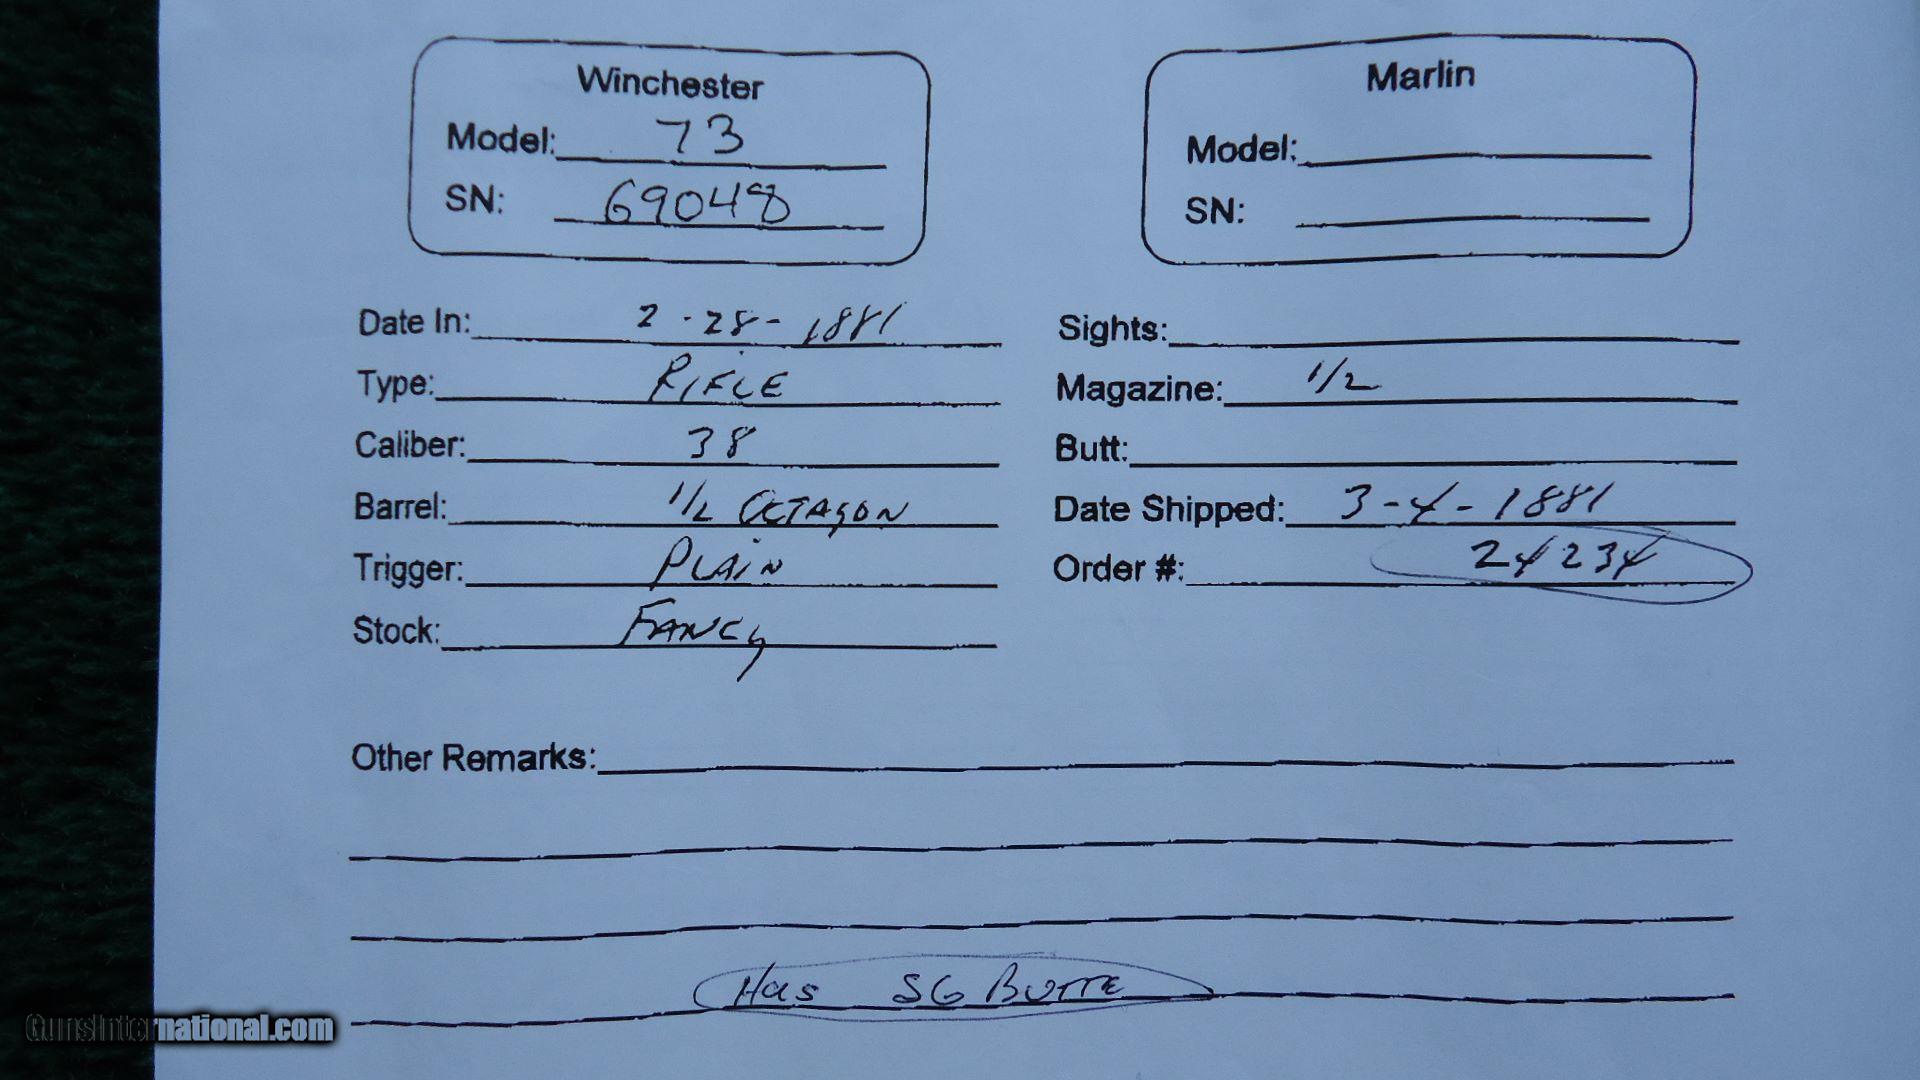 Winchester
Model: 73
SN: 69048
Marlin
Model:
SN:
Date In: 2-28-1881
Type: RIFLE
Caliber: 38
Barrel: 1/2 OCTAGON
Trigger: PLAIN
Stock: FANCY
Sights:
Magazine: 1/2
Butt:
Date Shipped: 3-4-1881
Order #: 24234
Other Remarks:
Has SG BUTTE
GunsInternational.com